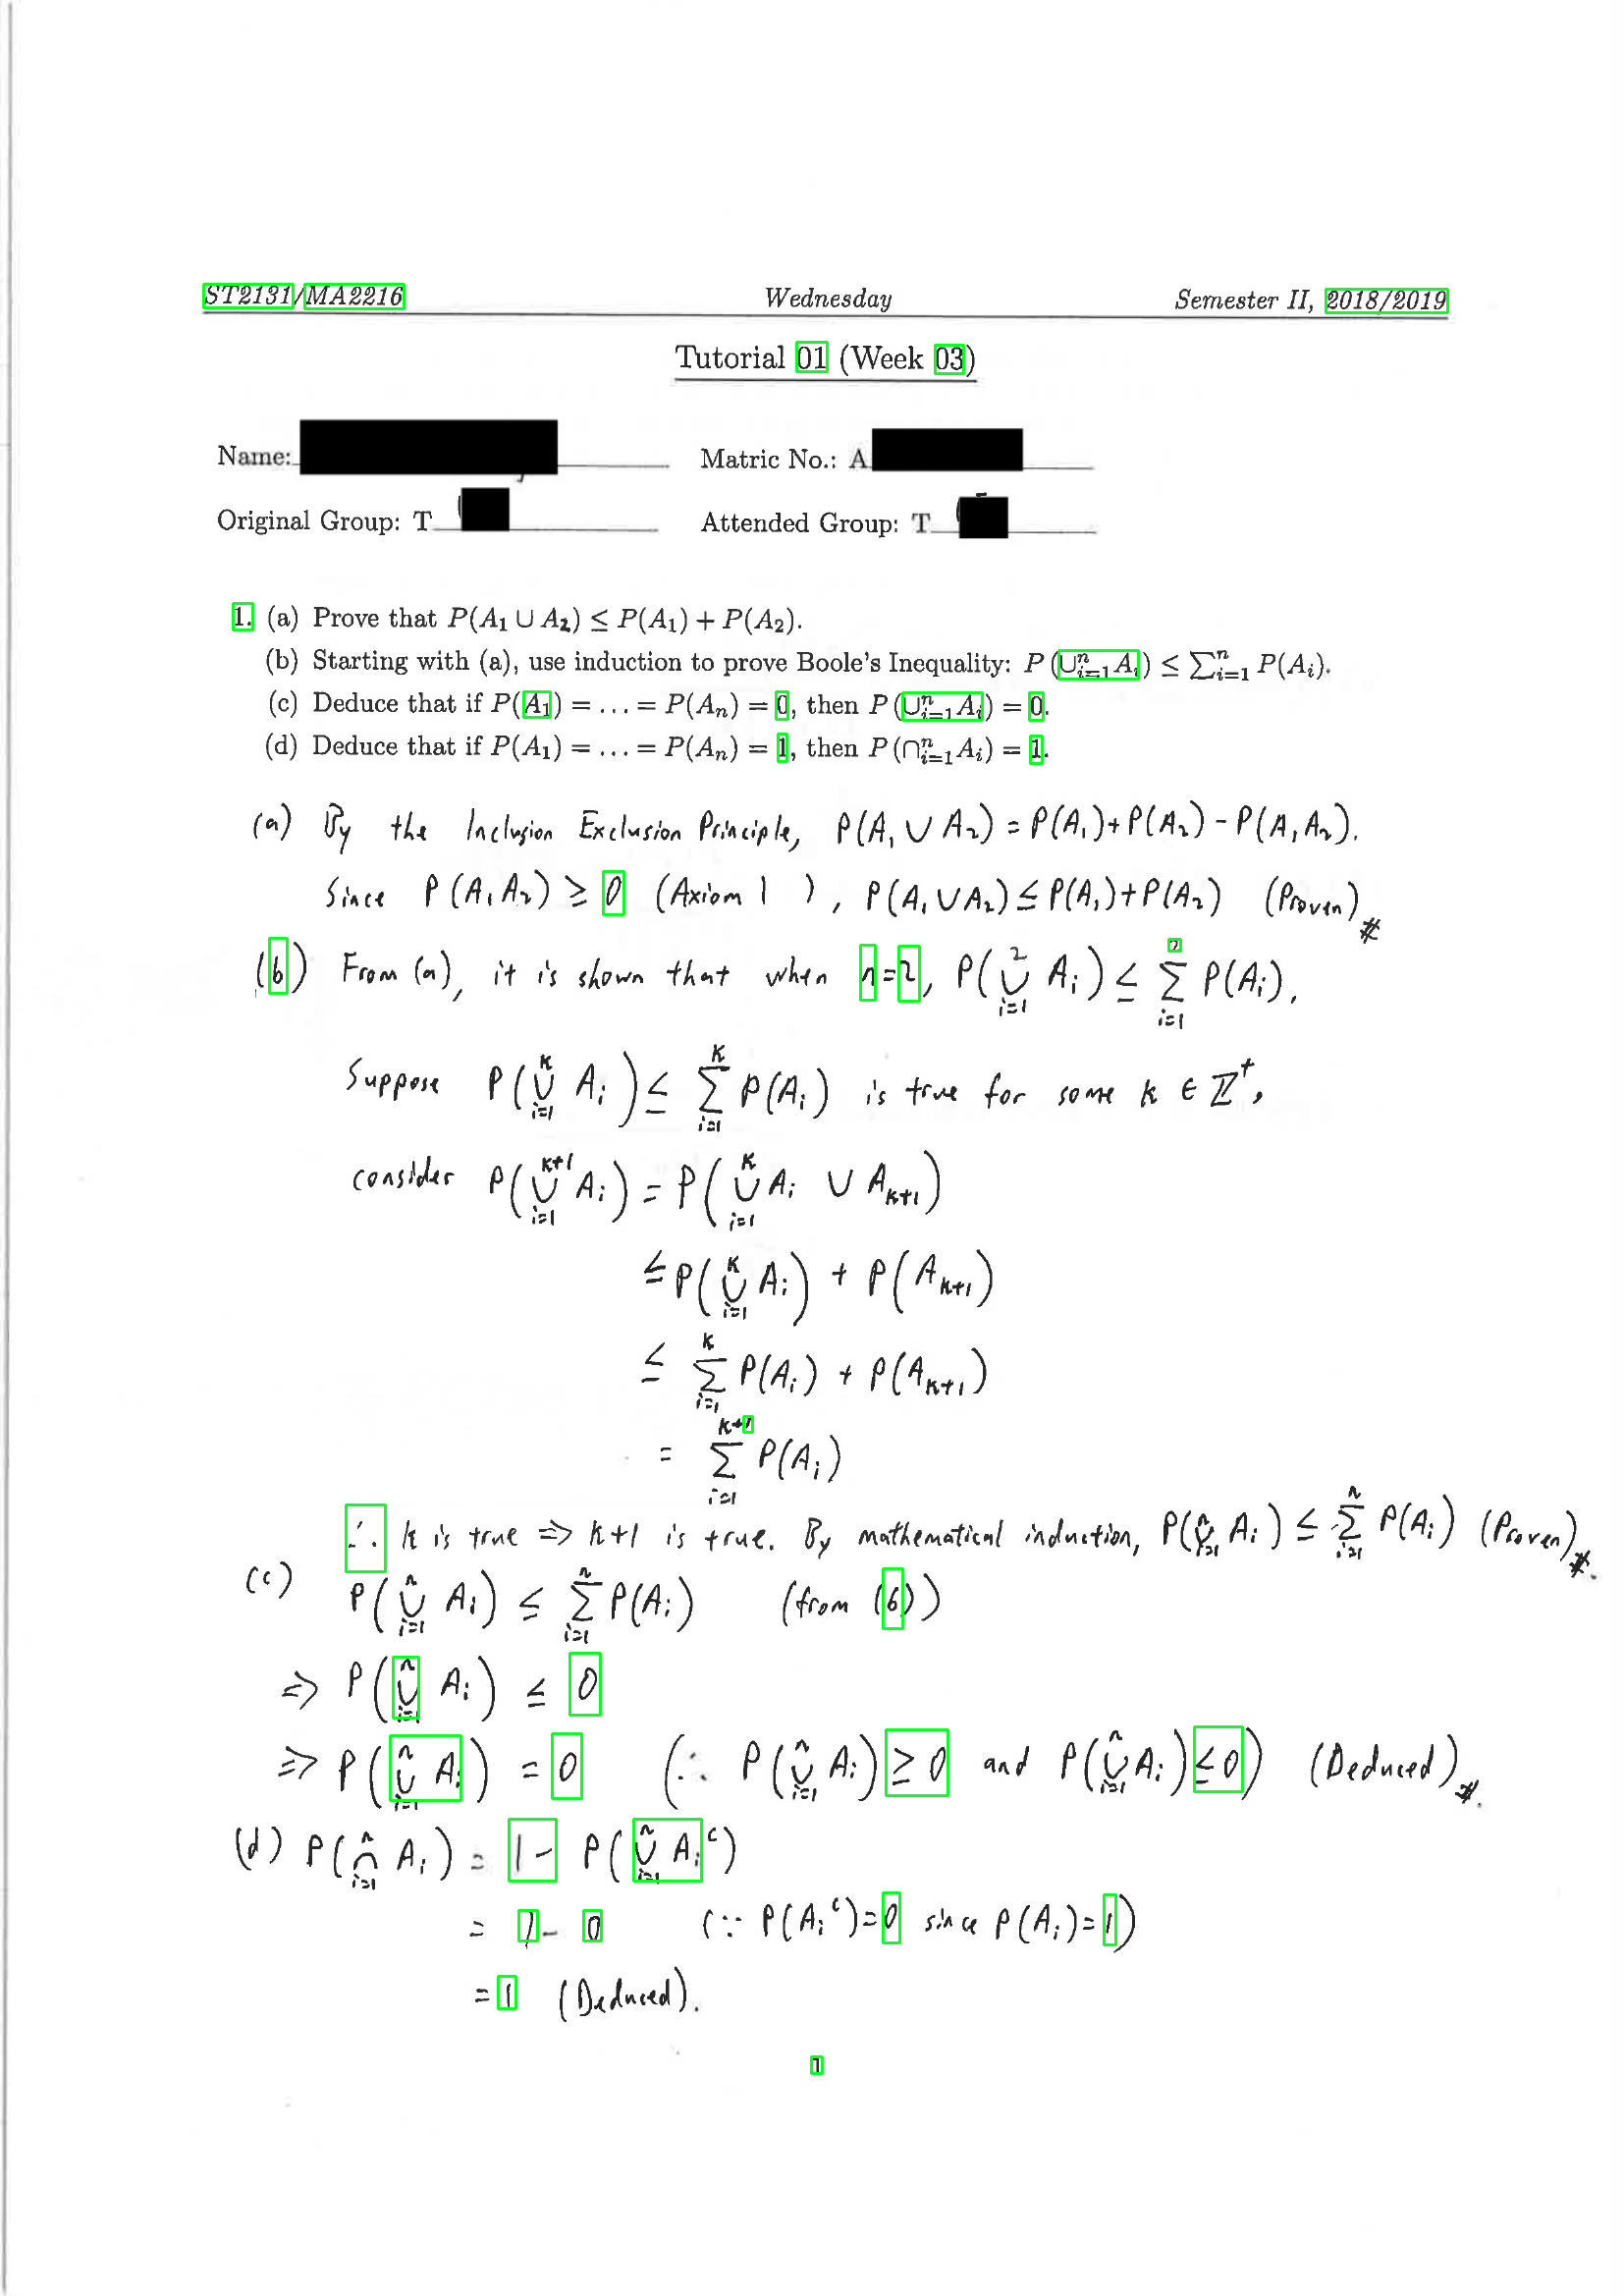 ST2131/MA2216 Wednesday Semester II, 2018/2019
Tutorial 01 (Week 03)
Name: Matric No.: A
Original Group: T Attended Group: T
1. (a) Prove that P(A₁ ∪ A₂) ≤ P(A₁) + P(A₂).
(b) Starting with (a), use induction to prove Boole's Inequality: P(∪ⁿᵢ₌₁Aᵢ) ≤ ∑ⁿᵢ₌₁ P(Aᵢ).
(c) Deduce that if P(A₁) = ... = P(Aₙ) = 0, then P(∪ⁿᵢ₌₁Aᵢ) = 0.
(d) Deduce that if P(A₁) = ... = P(Aₙ) = 1, then P(∩ⁿᵢ₌₁Aᵢ) = 1.
(a) By the Inclusion Exclusion Principle, P(A₁ ∪ A₂) = P(A₁)+P(A₂) - P(A₁A₂).
Since P(A₁A₂) ≥ 0 (Axiom 1 ), P(A₁ ∪ A₂) ≤ P(A₁)+P(A₂) (Proven)#
(b) From (a), it is shown that when n=2, P(∪²ᵢ₌₁ Aᵢ) ≤ ∑²ᵢ₌₁ P(Aᵢ).
Suppose P(∪ᵏᵢ₌₁ Aᵢ) ≤ ∑ᵏᵢ₌₁ P(Aᵢ) is true for some k ∈ ℤ⁺,
consider P(∪ᵏ⁺¹ᵢ₌₁ Aᵢ) = P(∪ᵏᵢ₌₁ Aᵢ ∪ Aₖ₊₁)
≤ P(∪ᵏᵢ₌₁ Aᵢ) + P(Aₖ₊₁)
≤ ∑ᵏᵢ₌₁ P(Aᵢ) + P(Aₖ₊₁)
= ∑ᵏ⁺¹ᵢ₌₁ P(Aᵢ)
∴ k is true ⇒ k+1 is true. By mathematical induction, P(∪ⁿᵢ₌₁ Aᵢ) ≤ ∑ⁿᵢ₌₁ P(Aᵢ) (Proven)#.
(c) P(∪ⁿᵢ₌₁ Aᵢ) ≤ ∑ⁿᵢ₌₁ P(Aᵢ) (from (b))
⇒ P(∪ⁿᵢ₌₁ Aᵢ) ≤ 0
⇒ P(∪ⁿᵢ₌₁ Aᵢ) = 0 (∵ P(∪ⁿᵢ₌₁ Aᵢ) ≥ 0 and P(∪ⁿᵢ₌₁ Aᵢ) ≤ 0) (Deduced)#.
(d) P(∩ⁿᵢ₌₁ Aᵢ) = 1 - P(∪ⁿᵢ₌₁ Aᵢᶜ)
= 1 - 0 (∵ P(Aᵢᶜ)=0 since P(Aᵢ)=1)
= 1 (Deduced).
1